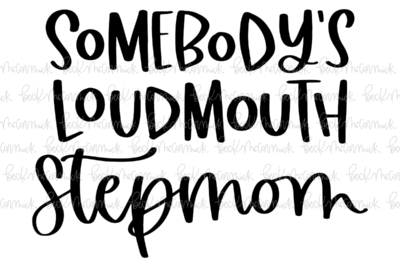 SOMEBODY'S
LOUDMOUTH
Stepmom